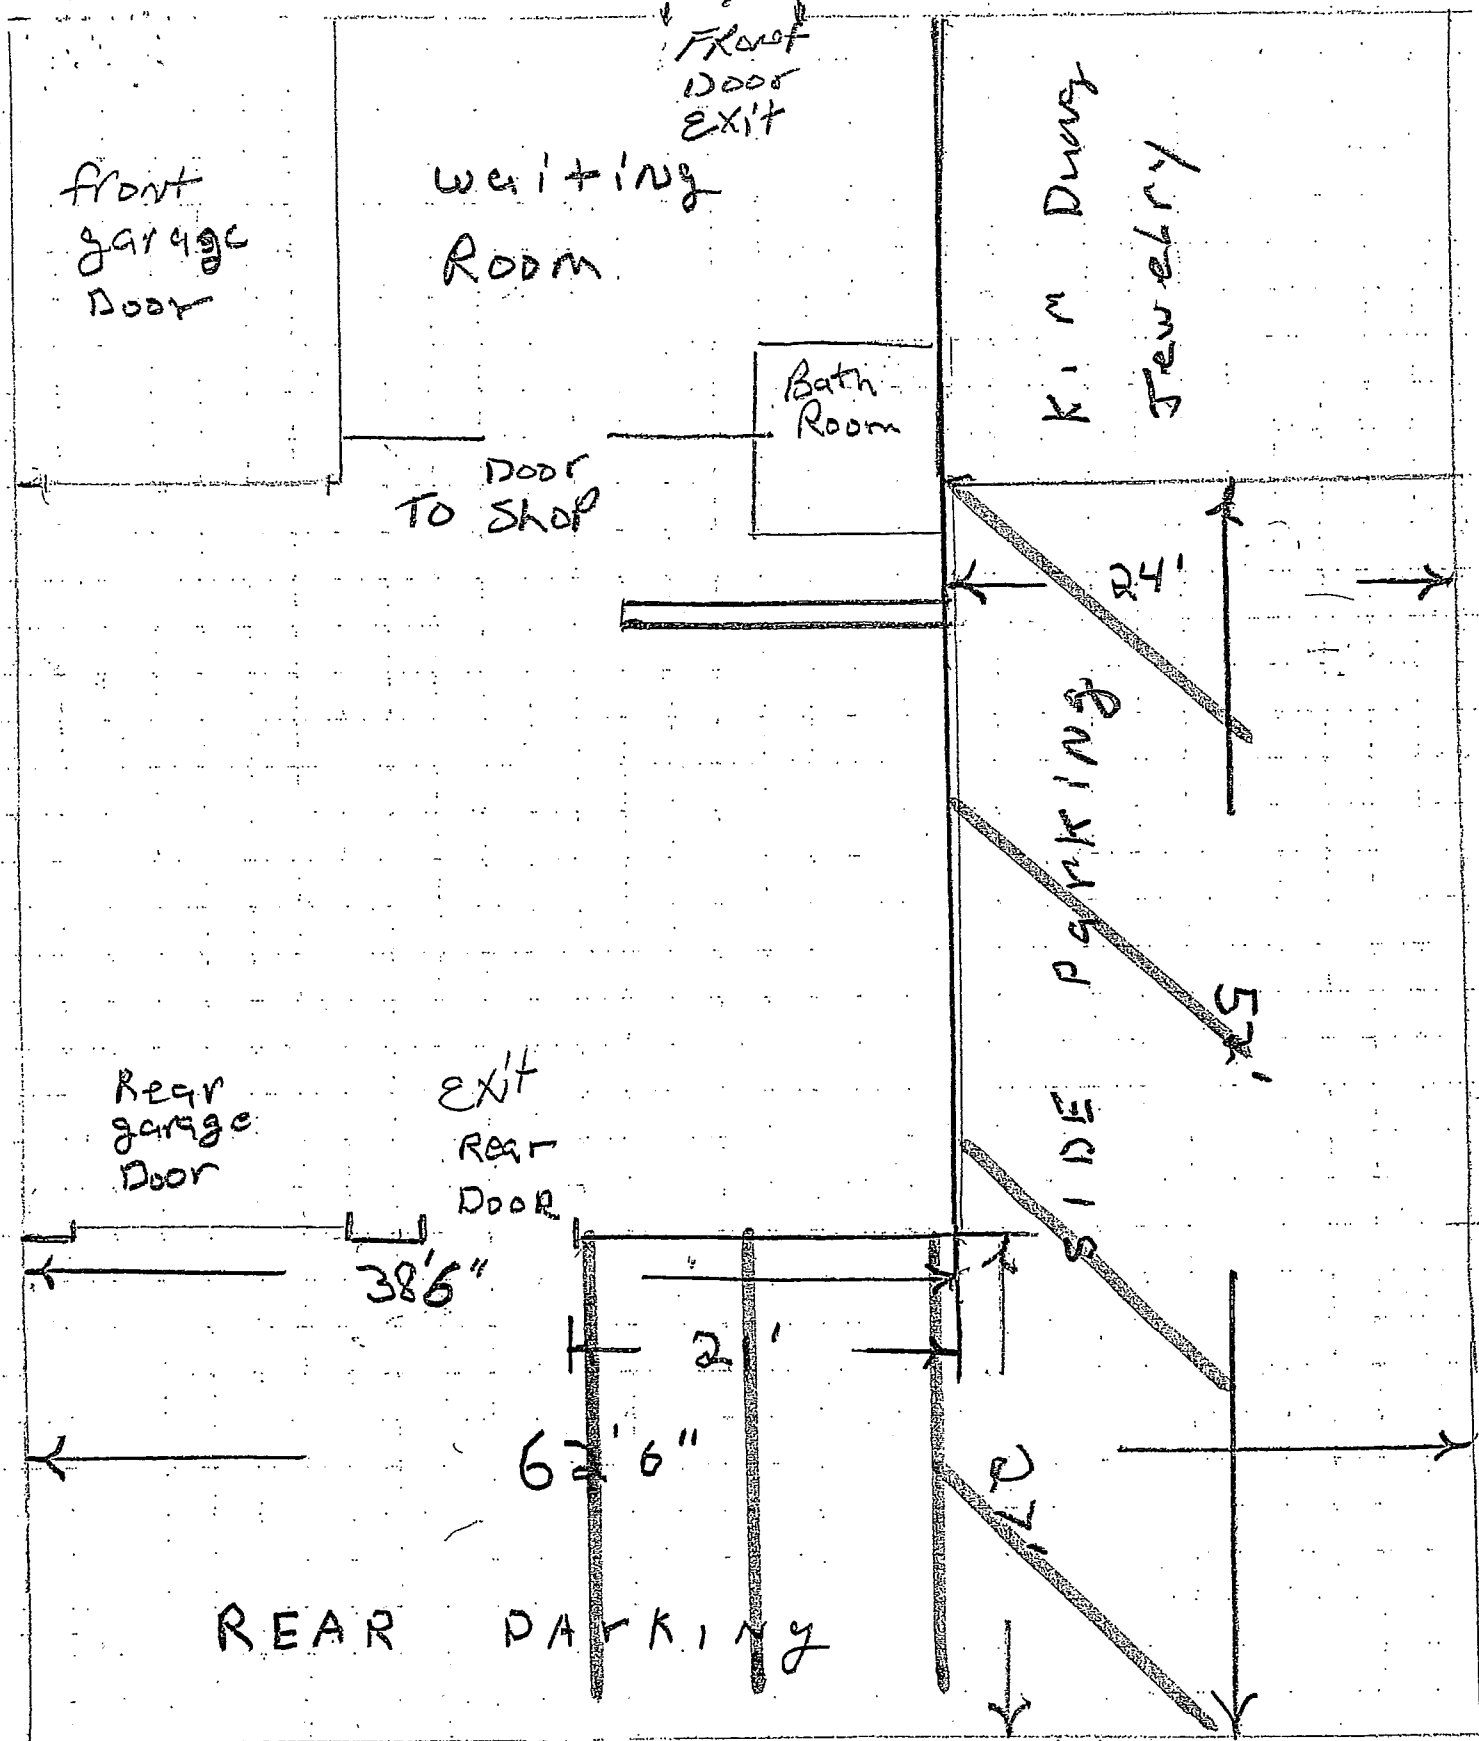 Front
Door
Exit
front
garage
Door
waiting
Room
Kim Dung
Jewelry
Bath
Room
Door
To Shop
24'
SIDE ParKing
Rear
garage
Door
Exit
Rear
DOOR
38'6"
6"
REAR PArKiNg